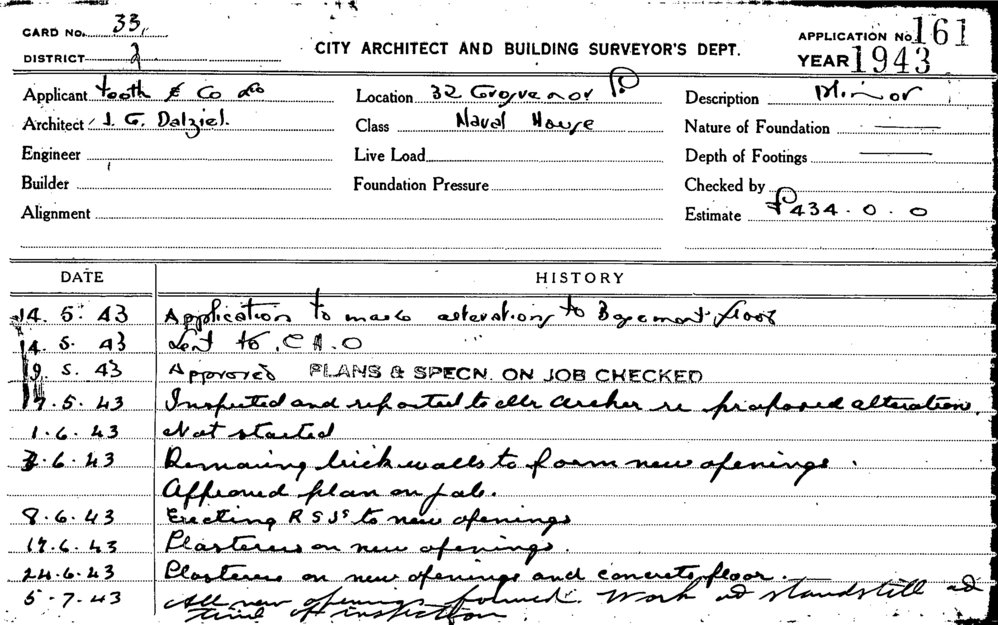 CARD No. 33.
DISTRICT 2
CITY ARCHITECT AND BUILDING SURVEYOR'S DEPT.
APPLICATION No. 161
YEAR 1943
Applicant Tooth & Co Ld
Location 32 Grosvenor
Description Minor
Architect J. G. Dalziel.
Class Naval House
Nature of Foundation —
Engineer
Live Load
Depth of Footings —
Builder
Foundation Pressure
Checked by
Alignment
Estimate £434.0.0
DATE HISTORY
14. 5. 43 Application to make alterations to Basement floor
14. 5. 43 Sent to C.H.O
19. 5. 43 Approved PLANS & SPECN. ON JOB CHECKED
17. 5. 43 Inspected and reported to Mr Archer re proposed alteration.
1. 6. 43 Not started
3. 6. 43 Removing brick walls to form new openings.
Approved plan on job.
8. 6. 43 Erecting R S Js to new openings
17. 6. 43 Plasterers on new openings.
24. 6. 43 Plasterers on new openings and concrete floor.
5. 7. 43 All new openings formed. Work at standstill at
time of inspection.